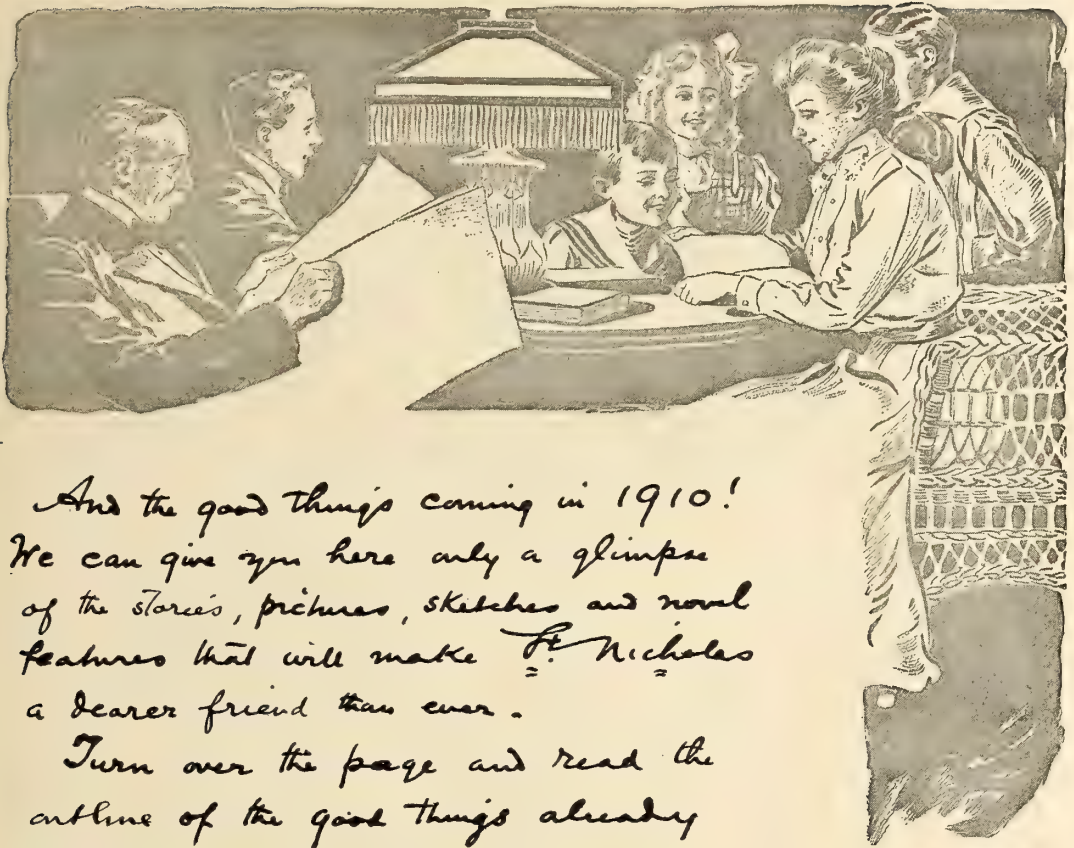 And the good things coming in 1910!
We can give you here only a glimpse
of the stories, pictures, sketches and novel
features that will make St. Nicholas
a dearer friend than ever.
Turn over the page and read the
outline of the good things already